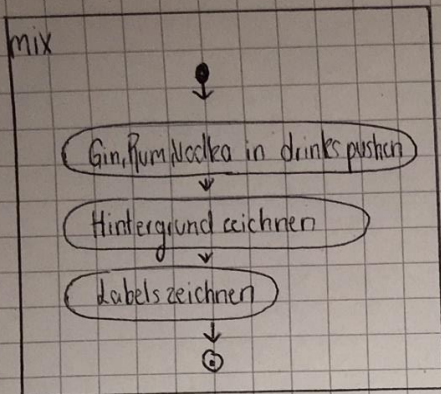 mix
Gin, Rum, Vodka in drinks pushen
Hintergrund zeichnen
Labels zeichnen